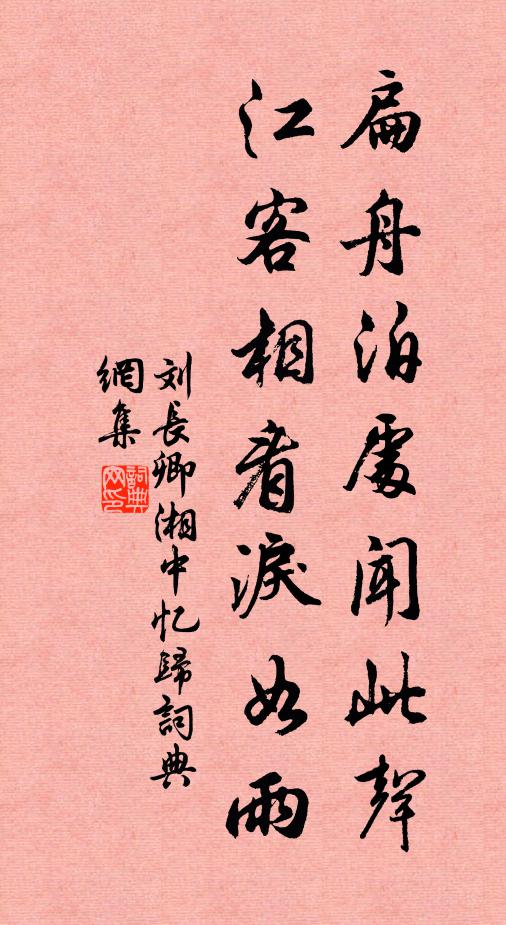 扁舟泊處聞此聲
江客相看淚如雨
刘長卿湘中忆歸詞典
網集
詞典
网印